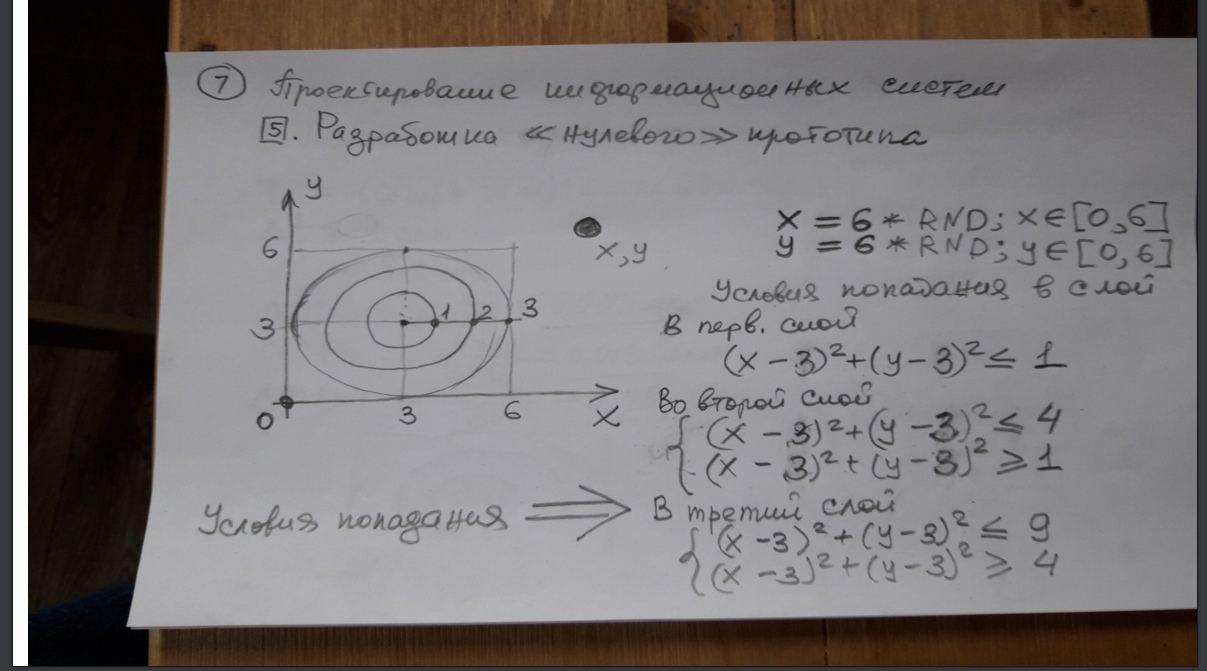 7 Проектирование информационных систем
5. Разработка «нулевого» прототипа
y
6
3
0
3
6
x
1
2
3
x, y
x = 6 * RND; x ∈ [0,6]
y = 6 * RND; y ∈ [0,6]
Условия попадания в слой
В перв. слой
(x - 3)² + (y - 3)² ≤ 1
Во второй слой
(x - 3)² + (y - 3)² ≤ 4
(x - 3)² + (y - 3)² ≥ 1
Условия попадания ⟹ В третий слой
(x - 3)² + (y - 3)² ≤ 9
(x - 3)² + (y - 3)² ≥ 4